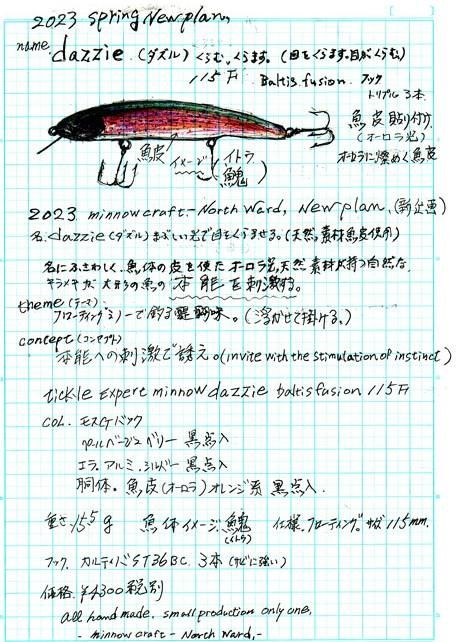 2023 spring New plan,
name dazzie. (ダズル) くらむ、くらます。 (目をくらます。目がくらむ)
115 F Baltis fusion. フック
トリプル 3本.
魚皮貼り付け
(オーロラ光)
オーロラに煌めく魚皮
魚皮 イメージ (イトウ 魂)
2023 minnow craft - North Ward, New plan, (新企画)
名. dazzie (ダズル) まぶしい光で目をくらませる。(天然素材魚皮使用)
名にふさわしく、魚体の皮を使た オーロラ光、天然素材が持つ自然な、
キラメキが 大形の魚の 本能を刺激する。
theme (テーマ)
フローティングミノーで釣る醍醐味。 (浮かせて掛ける.)
concept (コンセプト)
本能への刺激で誘え。(invite with the stimulation of instinct)
tickle Expert minnow dazzie baltis fusion 115 F
COL. モスGバック
パールベージュベリー 黒点入
エラ. アルミ. シルバー 黒点入
胴体. 魚皮(オーロラ)オレンジ系 黒点入.
重さ. 15.5g 魚体イメージ. 魂 (イトウ) 仕様. フローティング. サイズ 115mm.
フック. カルティバ ST36BC. 3本 (サビに強い)
価格. ¥4300 税別
all hand made. small production only one,
- minnow craft - North Ward, -